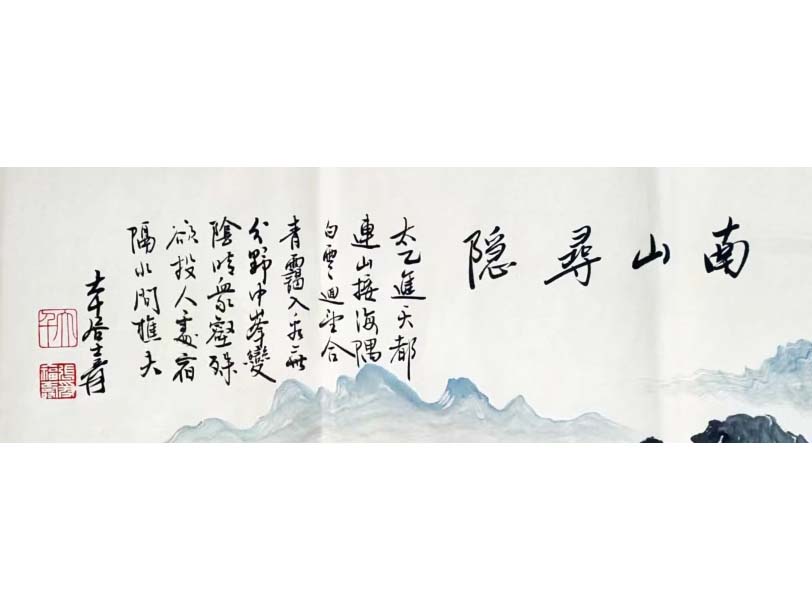 南山尋隐
太乙進天都
連山接海隅
白雲迴望合
青靄入看無
分野中峯變
陰晴衆壑殊
欲投人處宿
隔水問樵夫
大千居士爰
大千